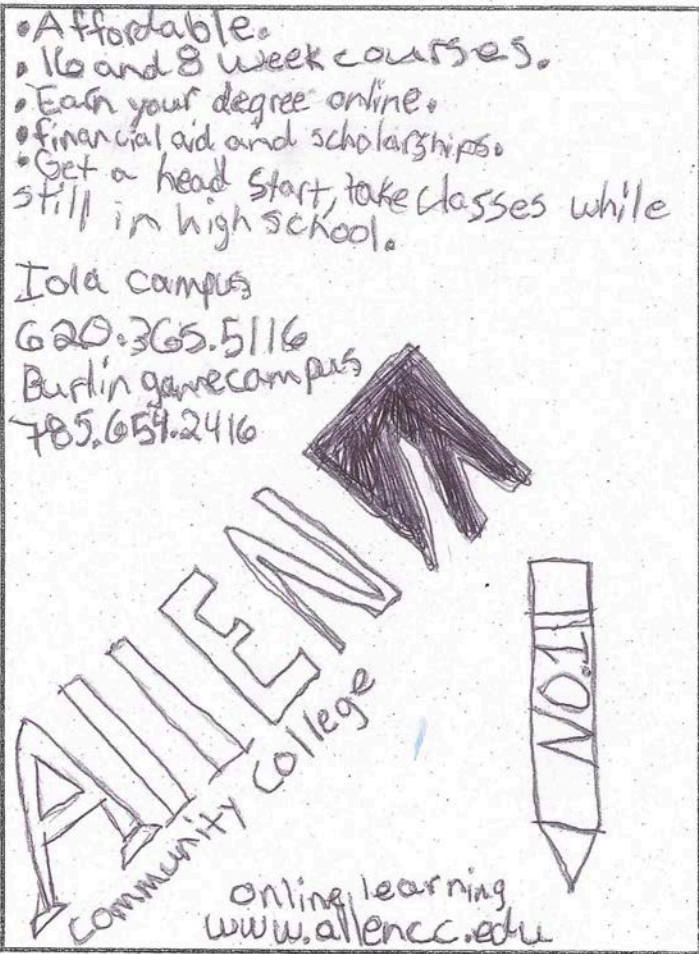 •Affordable.
•16 and 8 week courses.
•Earn your degree online.
•financial aid and scholarships.
•Get a head start, take classes while
still in high school.
Iola campus
620.365.5116
Burlingame campus
785.654.2416
AllEN
community college
NO.1
online learning
www.allencc.edu